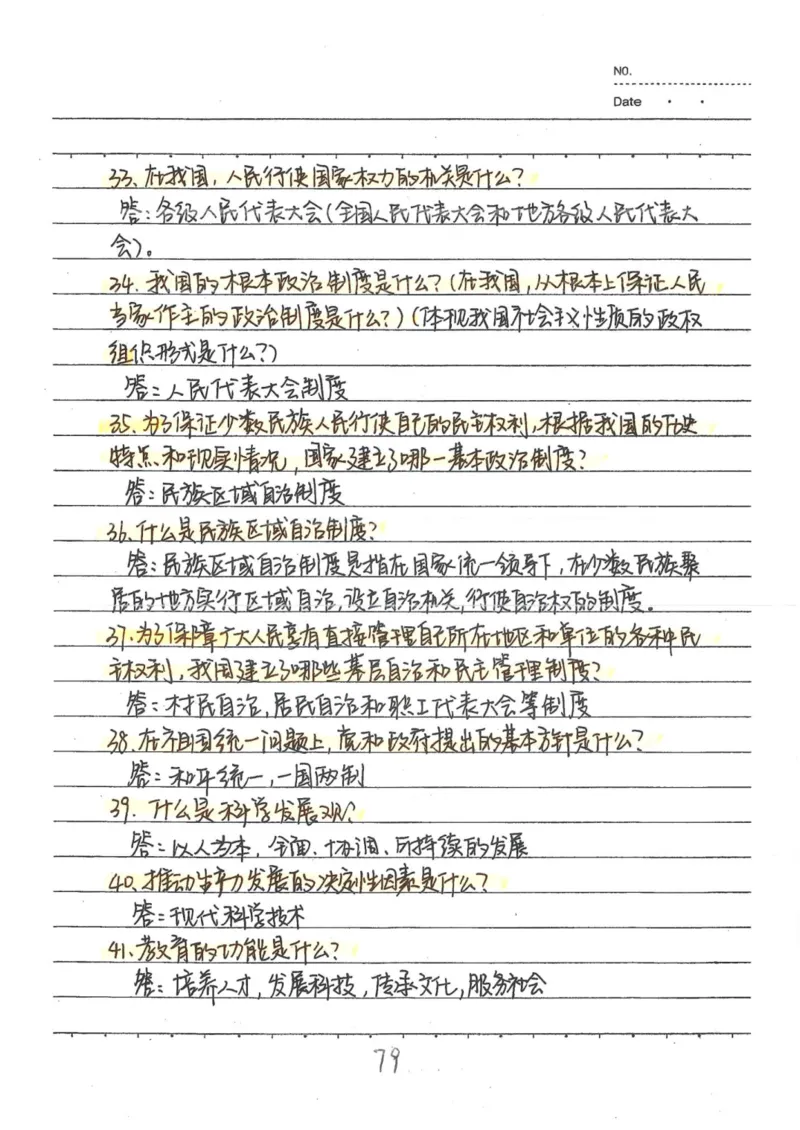 NO.
Date
33、在我国，人民行使国家权力的机关是什么？
答：各级人民代表大会（全国人民代表大会和地方各级人民代表大
会）。
34. 我国的根本政治制度是什么？（在我国，从根本上保证人民
当家作主的政治制度是什么？）（体现我国社会主义性质的政权
组织形式是什么？）
答：人民代表大会制度
35、为了保证少数民族人民行使自己的民主权利，根据我国的历史
特点和现实情况，国家建立了哪一基本政治制度？
答：民族区域自治制度
36、什么是民族区域自治制度？
答：民族区域自治制度是指在国家统一领导下，在少数民族聚
居的地方实行区域自治，设立自治机关，行使自治权的制度。
37、为了保障广大人民享有直接管理自己所在地区和单位的各种民
主权利，我国建立了哪些基层自治和民主管理制度？
答：村民自治，居民自治和职工代表大会等制度
38、在祖国统一问题上，党和政府提出的基本方针是什么？
答：和平统一，一国两制
39. 什么是科学发展观？
答：以人为本，全面、协调、可持续的发展
40、推动生产力发展的决定性因素是什么？
答：现代科学技术
41、教育的功能是什么？
答：培养人才，发展科技，传承文化，服务社会
79